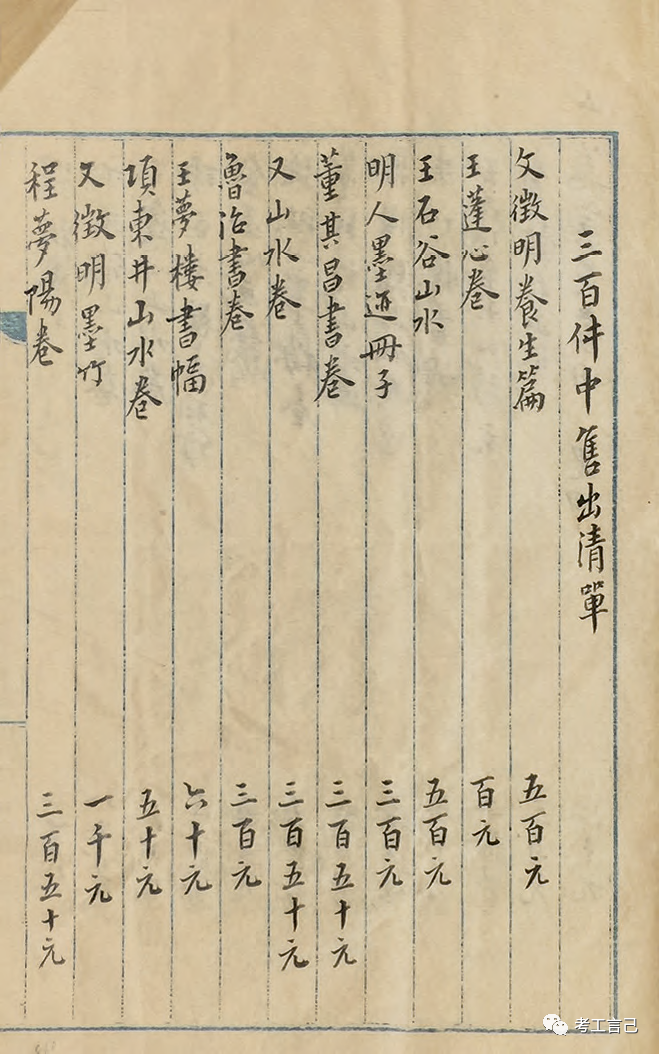 三百件中售出清單
文徵明養生篇 五百元
王蓬心卷 百元
王石谷山水 五百元
明人墨迹冊子 三百元
董其昌書卷 三百五十元
又山水卷 三百五十元
魯治書卷 三百元
王夢樓書幅 六十元
項東井山水卷 五十元
文徵明墨竹 一千元
程夢陽卷 三百五十元
考工言己